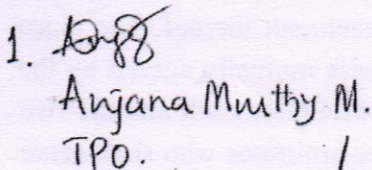 1.
Anjana Murthy M.
TPO.